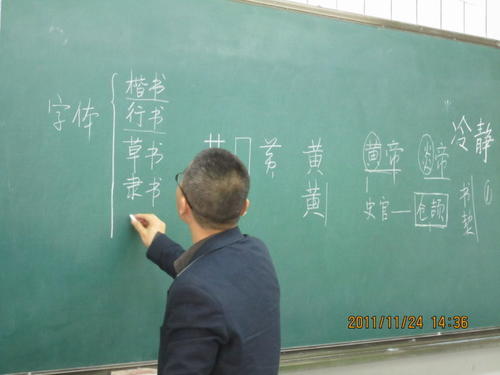 字体
楷书
行书
草书
隶书
黄
黄
黄帝 炎帝
史官—仓颉
书契
冷静
①
2011/11/24 14:36